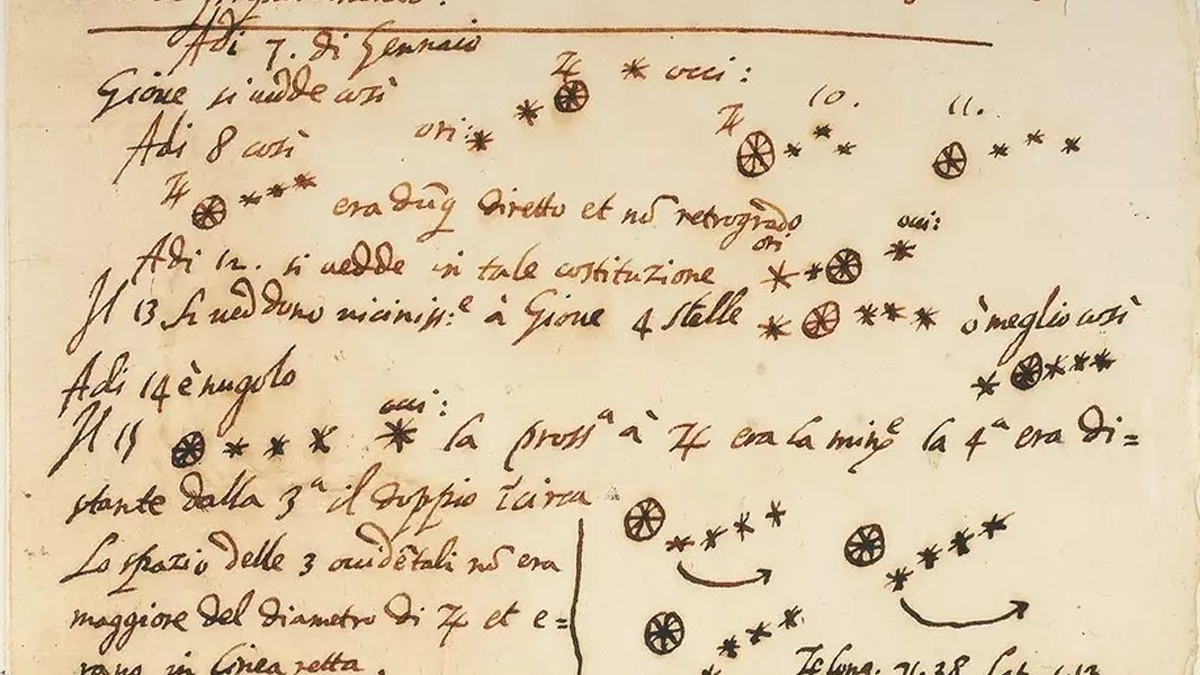 Adi 7. di Gennaio
Gioue si uedde così
♃ occi:
ori:
Adi 8 così
♃ 10. 11.
♃
era dūq diretto et nō retrogrado
Adi 12. si uedde in tale costituzione ori: occi:
Il 13 si ueddono uiciniss.e à Gioue 4 stelle ò meglio così
Adi 14 è nugolo
occi:
Il 15 la pross.a à ♃ era la min.e la 4a era di=
stante dalla 3a il doppio circa
Lo spazio delle 3 occidētali nō era
maggiore del diametro di ♃ et e=
rano in linea retta.
♃ long. 71.38 Lat. 1.13